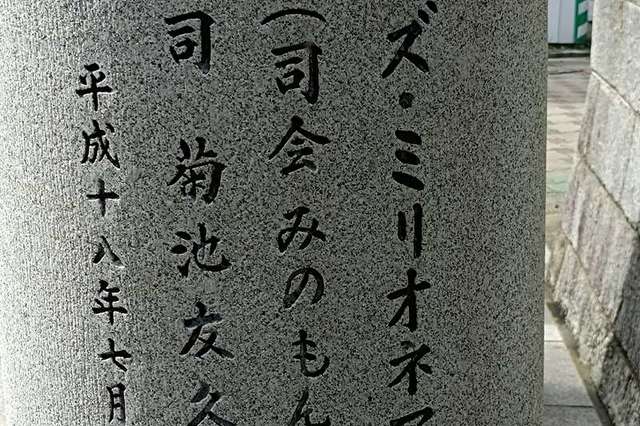 ズ・ミリオネア
(司会みのもん
司 菊池友久
平成十八年七月